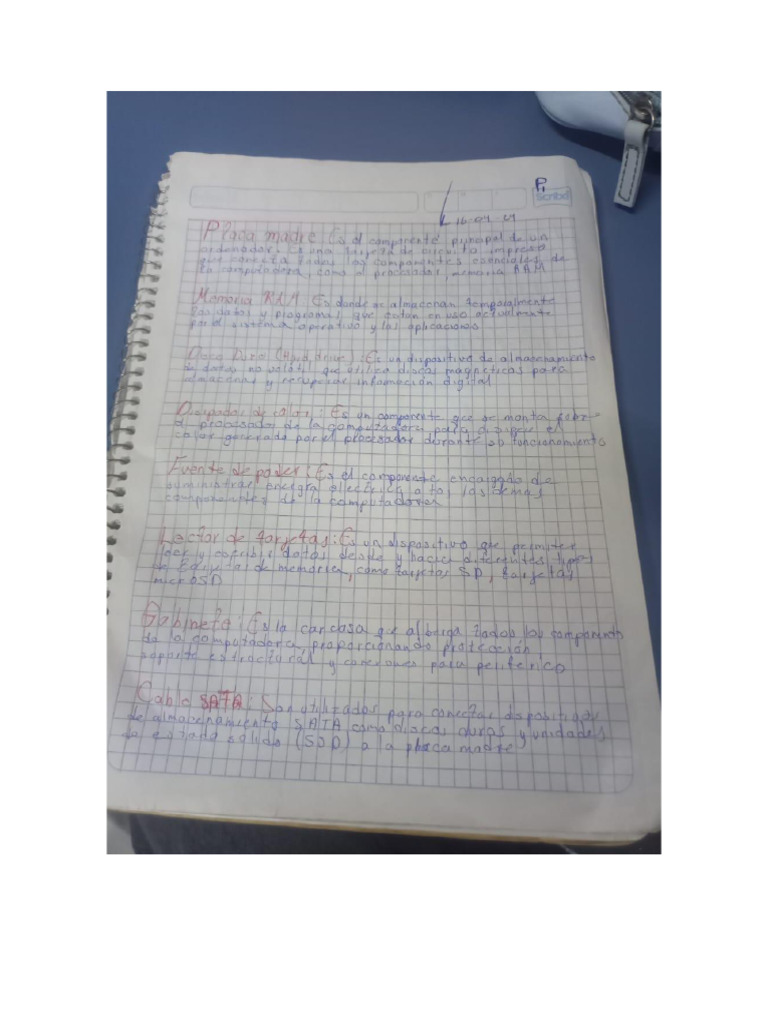 Scribd
16-04-24
Placa madre: Es el componente principal de un
ordenador. Es una tarjeta de circuito impreso
que conecta todos los componentes esenciales de
la computadora, como el procesador, memoria RAM
Memoria RAM: Es donde se almacenan temporalmente
los datos y programas que estan en uso actualmente
por el sistema operativo y las aplicaciones
Disco Duro (Hard drive): Es un dispositivo de almacenamiento
de datos no volátil que utiliza discos magnéticos para
almacenar y recuperar información digital
Disipador de calor: Es un componente que se monta sobre
el procesador de la computadora para disipar el
calor generado por el procesador durante su funcionamiento
Fuente de poder: Es el componente encargado de
suministrar energia eléctrica a los demas
componentes de la computadora
Lector de tarjetas: Es un dispositivo que permite
leer y escribir datos desde y hacia diferentes tipos
de tarjetas de memoria, como tarjetas SD, tarjetas
microSD
Gabinete: Es la carcasa que alberga todos los componentes
de la computadora, proporcionando protección,
soporte estructural y conexiones para periferico
Cable SATA: Son utilizados para conectar dispositivos
de almacenamiento SATA como discos duros y unidades
de estado sólido (SDD) a la placa madre